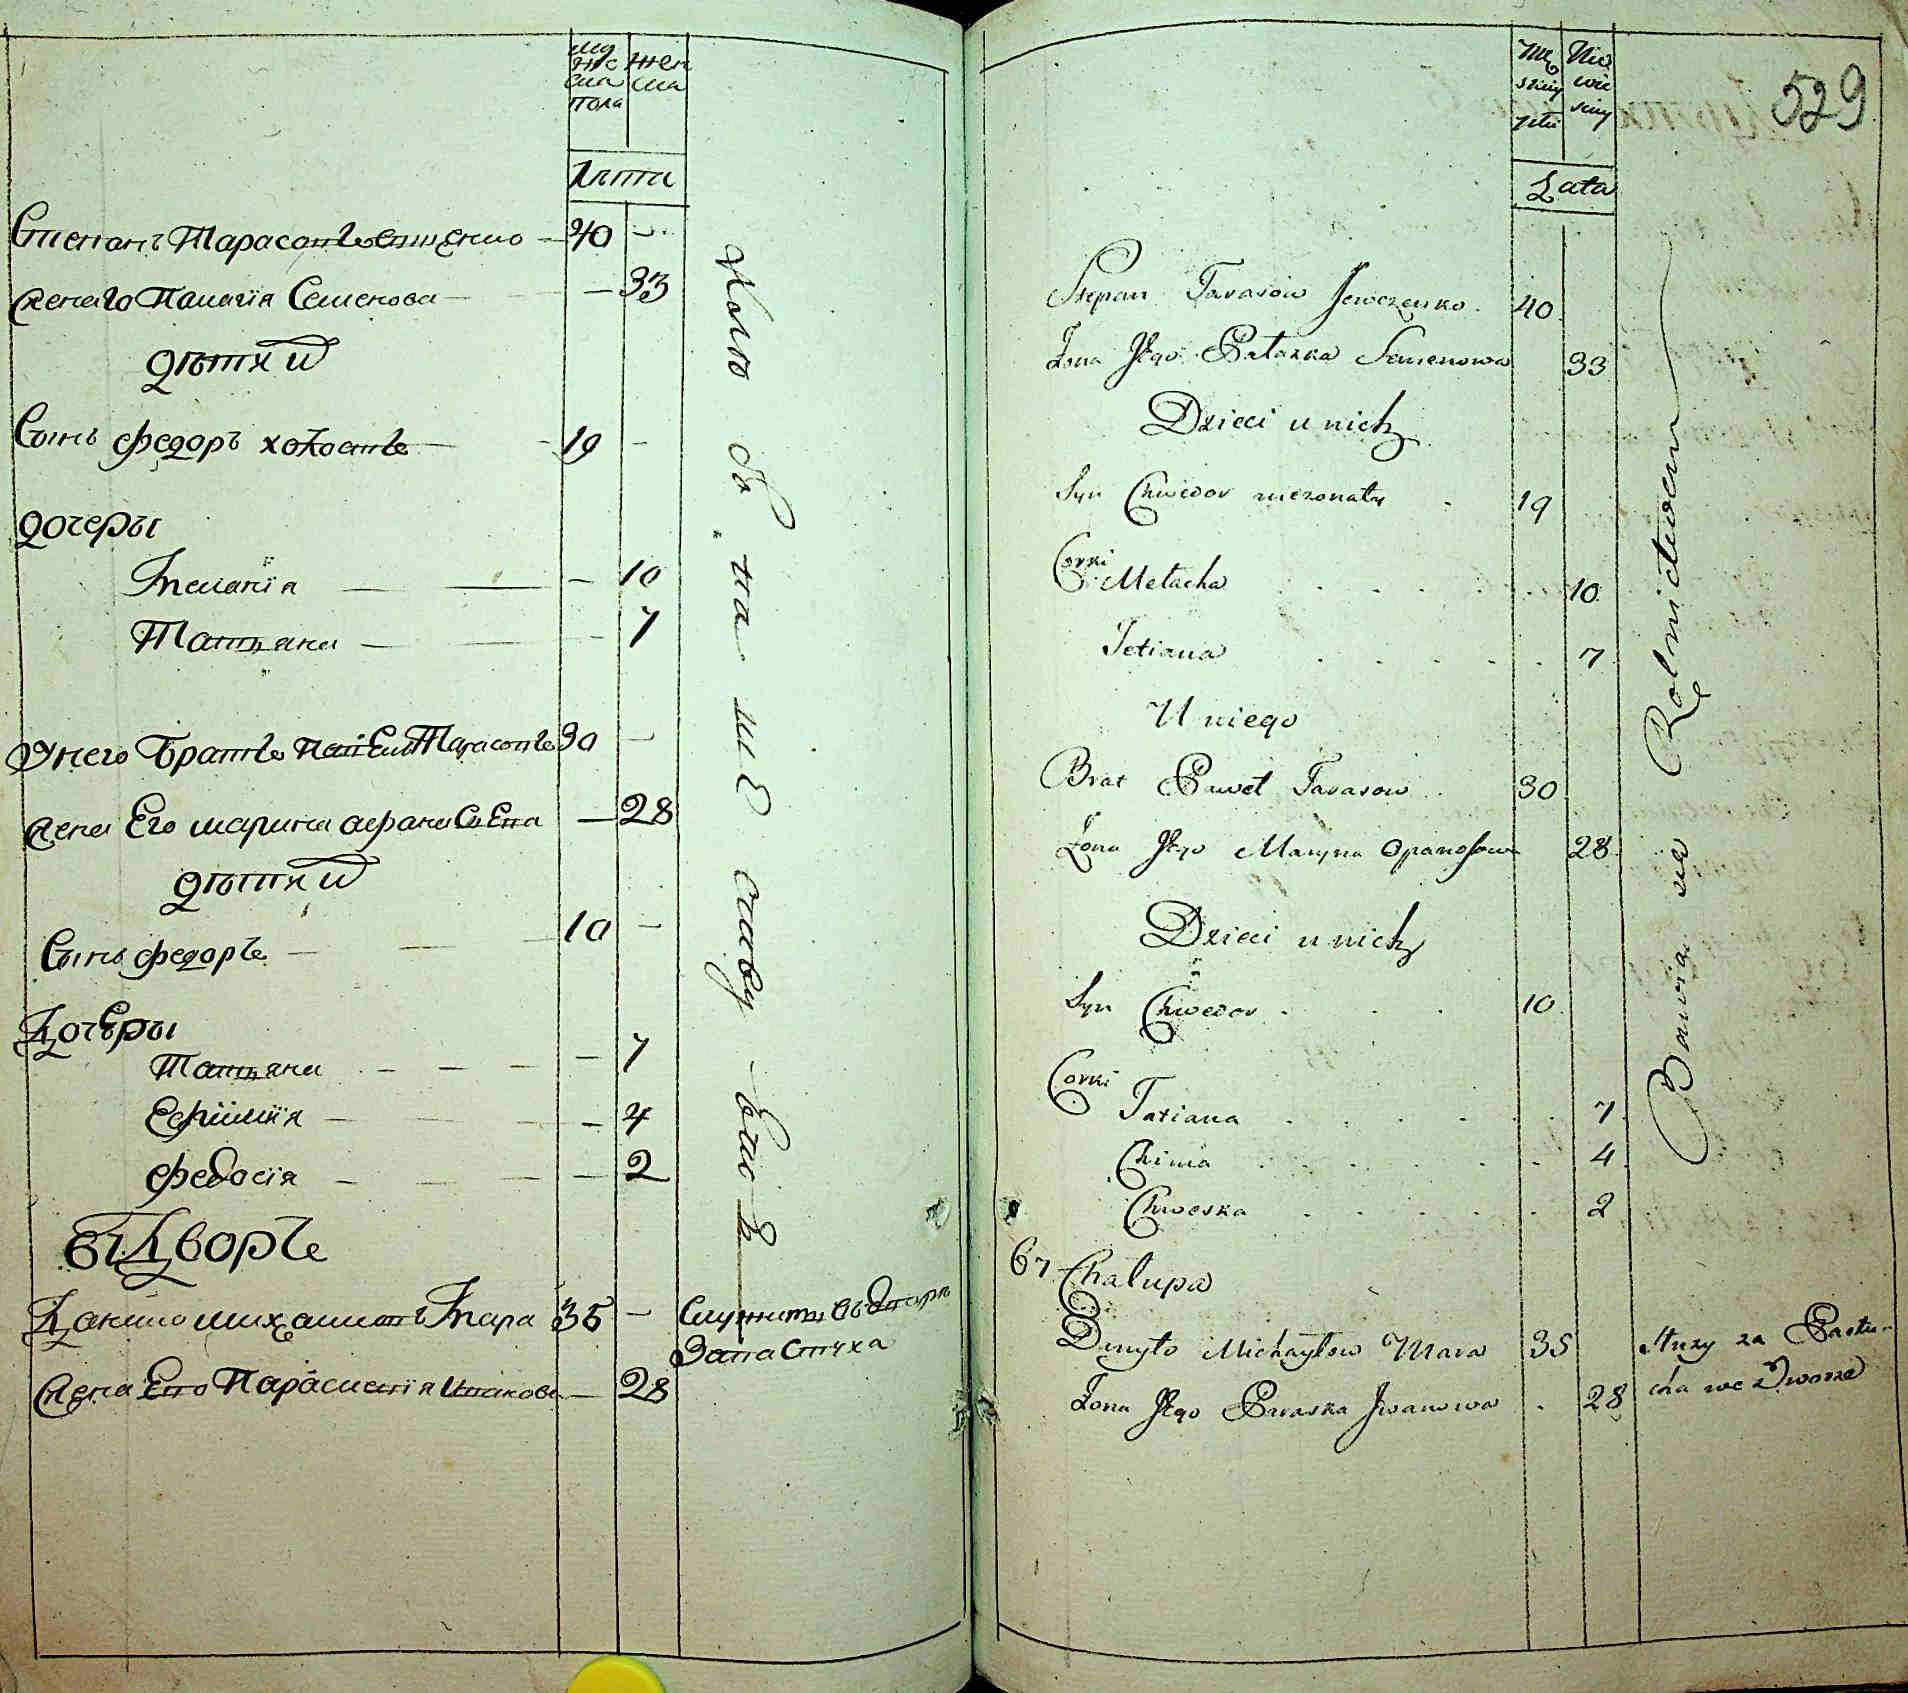 Мужеска пола
Женска
Лѣта
Степанъ Тарасовъ Евщенко — 40 —
Жена Его Палагія Семенова — 33
Дѣти ихъ
Сынъ Федоръ холостъ — 19 —
Дочеры
Меланія — 10
Татьяна — 7
У него Братъ Павелъ Тарасовъ 30 —
Жена Его Марина Афанасьева — 28
Дѣти ихъ
Сынъ Федоръ — 10 —
Дочеры
Татьяна — 7
Ефимія — 4
Федосія — 2
Въ Дворѣ
Данило Михайловъ Мара 35 —
Служитъ въ дворѣ
за пастуха
Жена Его Параскевія Иванова — 28
529
Męskiey płci
Niewieskiey
Lata
Stepan Tarasow Jewczenko 40
Żona Jego Pałazka Semenowa 33
Dzieci u nich
Syn Chwedor nieżonaty 19
Corki
Melacha 10
Tetiana 7
U niego
Brat Paweł Tarasow 30
Żona Jego Maryna Opanasowa 28
Dzieci u nich
Syn Chwedor 10
Corki
Tatiana 7
Chima 4
Chweska 2
67 Chałupa
Danyło Michayłow Mara 35
Żona Jego Paraska Iwanowa 28
Bawia sie Rolnictwem
służy za Pastu-
cha we Dworze